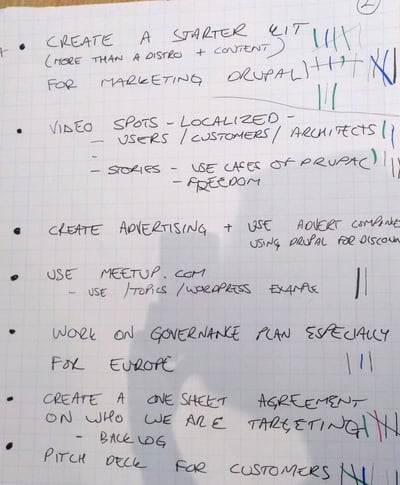 2
• CREATE A STARTER KIT
(MORE THAN A DISTRO + CONTENT)
FOR MARKETING DRUPAL
• VIDEO SPOTS - LOCALIZED -
- USERS / CUSTOMERS / ARCHITECTS
-
- STORIES - USE CASES OF DRUPAL
- FREEDOM
• CREATE ADVERTISING + USE ADVERT
USING DRUPAL FOR
• USE MEETUP.COM
- USE /TOPICS /WORDPRESS EXAMPLE
• WORK ON GOVERNANCE PLAN ESPECIALLY
FOR EUROPE
• CREATE A ONE SHEET AGREEMENT
ON WHO WE ARE TARGETING
- BACKLOG
• PITCH DECK FOR CUSTOMERS